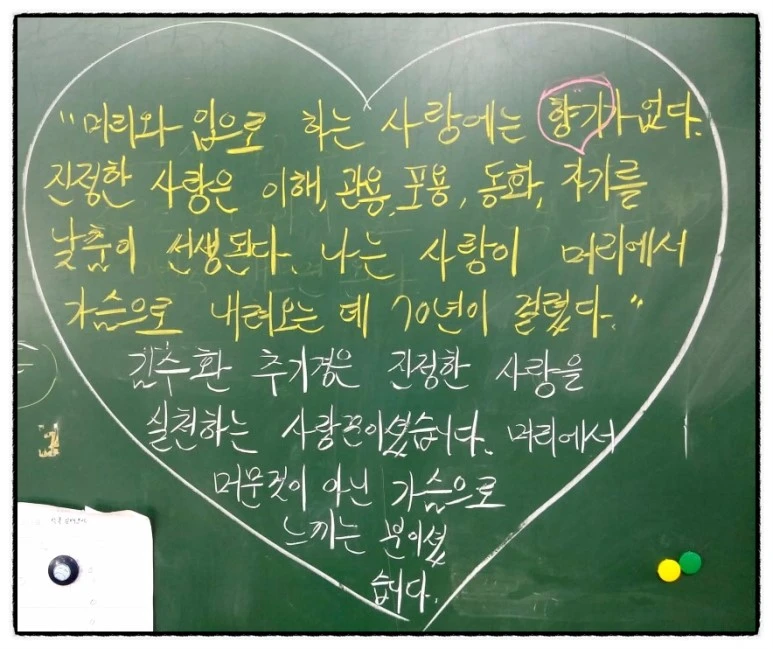 "머리와 입으로 하는 사랑에는 향기가 없다.
진정한 사랑은 이해, 관용, 포용, 동화, 자기를
낮춤이 선생된다. 나는 사랑이 머리에서
가슴으로 내려오는 데 70년이 걸렸다."
김수환 추기경은 진정한 사랑을
실천하는 사랑꾼이셨습니다. 머리에서
머문것이 아닌 가슴으로
느끼는 분이셨
습니다.